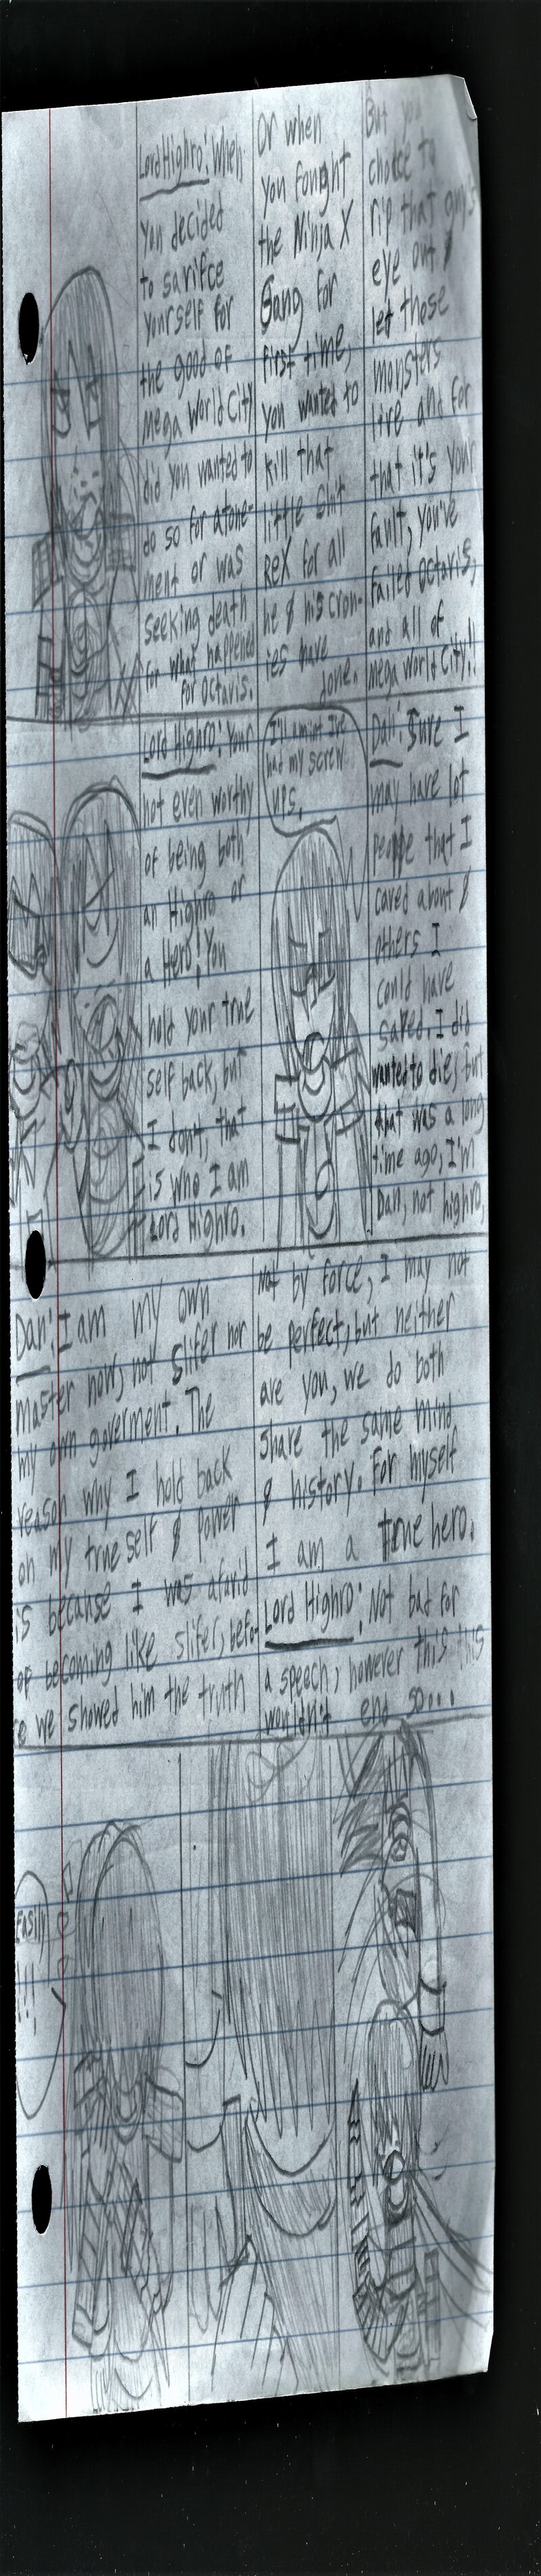 Lord Highro: When
you decided
to sarifce
yourself for
the good of
Mega World City
did you wanted to
do so for atone-
ment or was
seeking death
for what happened
for Octavis.
Or when
you fought
the Ninja X
Gang for
first time,
you wanted to
kill that
little shit
Rex for all
he & his cron-
ies have
done.
But you
choose to
rip that
eye out &
let those
monsters
live and for
that it's your
fault, you've
failed Octavis,
and all of
Mega World City!!
Lord Highro: Your
not even worthy
of being both
an Highro or
a Hero! You
hold your true
self back, but
I dont, that
is who I am
Lord Highro.
I'll admit I've
had my screw
ups,
Dan: Sure I
may have lot
people that I
cared about &
others I
could have
saved. I did
wanted to die, but
that was a long
time ago, I'm
Dan, not highro,
Dan: I am my own
master now, not Slifer nor
my own goverment. The
reason why I hold back
on my true self & power
is because I was afarid
of becoming like slifer, befo-
e we showed him the truth
not by force, I may not
be perfect, but neither
are you, we do both
share the same mind
& history. For myself
I am a true hero.
Lord Highro: Not bad for
a speech, however this this
wouldn't end so...
Easily
!!!